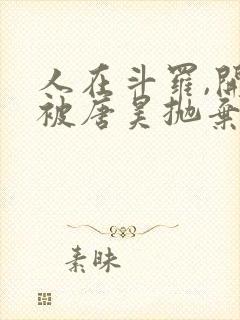 人在斗罗,開
被唐昊抛棄
素昧